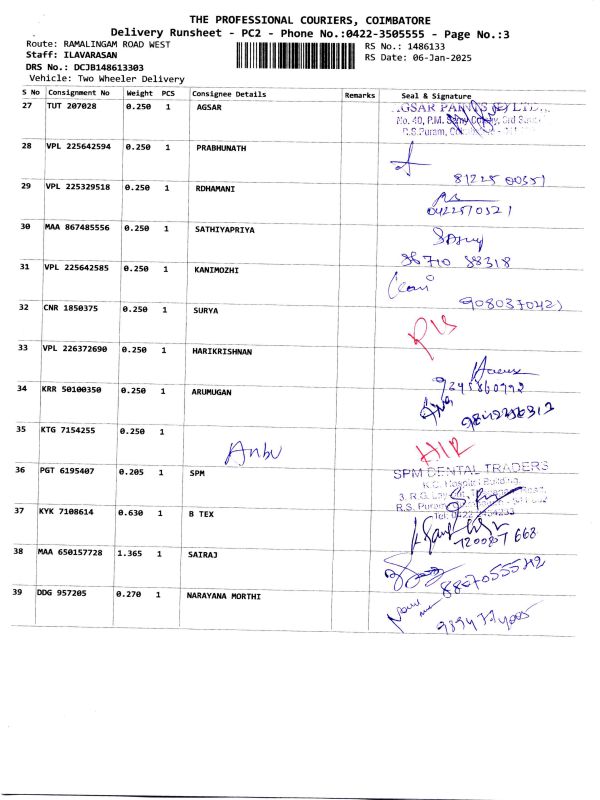 THE PROFESSIONAL COURIERS, COIMBATORE
Delivery Runsheet - PC2 - Phone No.:0422-3505555 - Page No.:3
Route: RAMALINGAM ROAD WEST RS No.: 1486133
Staff: ILAVARASAN RS Date: 06-Jan-2025
DRS No.: DCJB148613303
Vehicle: Two Wheeler Delivery
S No Consignment No Weight PCS Consignee Details Remarks Seal & Signature
27 TUT 207028 0.250 1 AGSAR
No. 40, P.M.
R.S.Puram,
28 VPL 225642594 0.250 1 PRABHUNATH
81225 00351
29 VPL 225329518 0.250 1 RDHAMANI
30 MAA 867485556 0.250 1 SATHIYAPRIYA
31 VPL 225642585 0.250 1 KANIMOZHI
32 CNR 1850375 0.250 1 SURYA
33 VPL 226372690 0.250 1 HARIKRISHNAN
34 KRR 50100350 0.250 1 ARUMUGAN
35 KTG 7154255 0.250 1
Anbu
36 PGT 6195407 0.205 1 SPM SPM DENTAL TRADERS
K.G. Hospital Building,
37 KYK 7108614 0.630 1 B TEX
38 MAA 650157728 1.365 1 SAIRAJ
39 DDG 957205 0.270 1 NARAYANA MORTHI